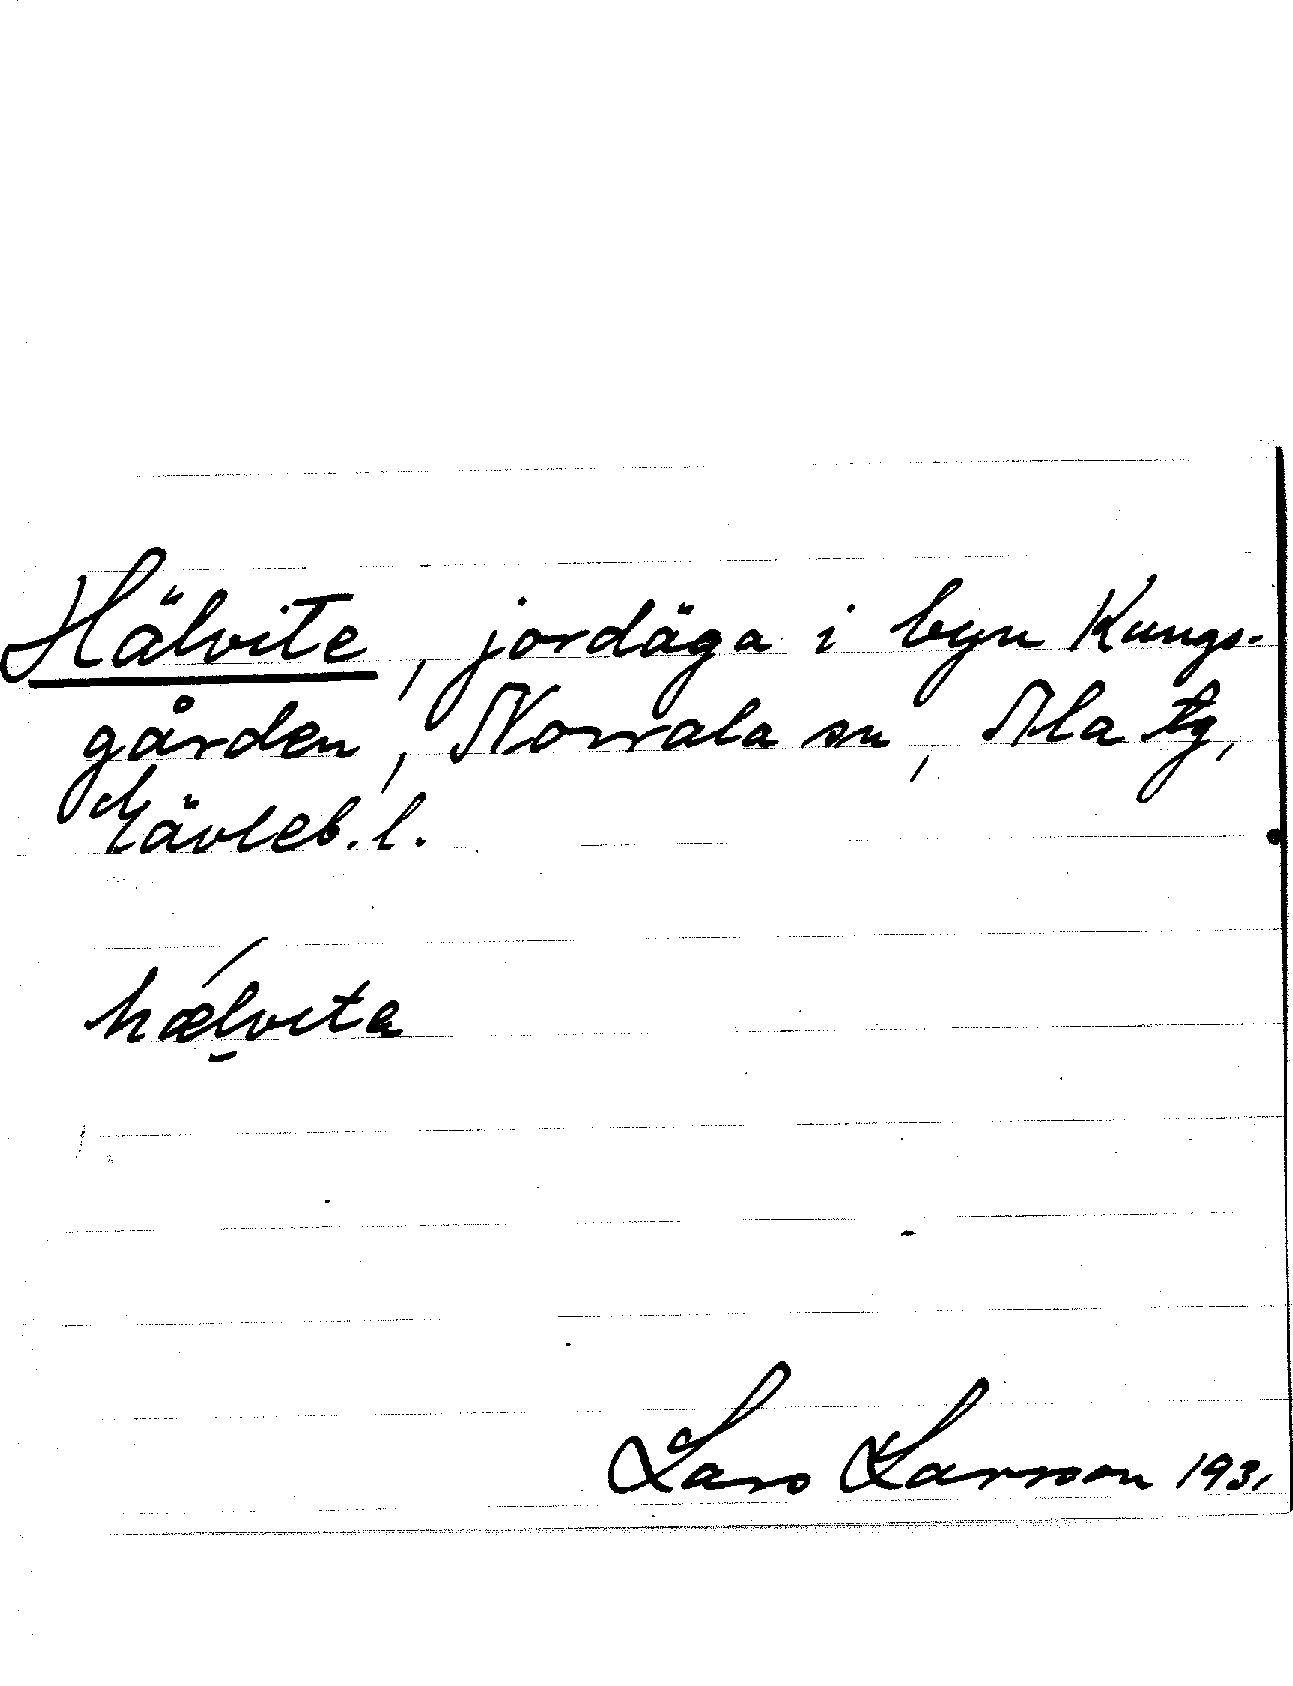 Hälvite, jordäga i byn Kungs-
gården, Norrala sn, Ala tg,
Gävleb. l.
hǽl̮vita
Lars Larsson 1931